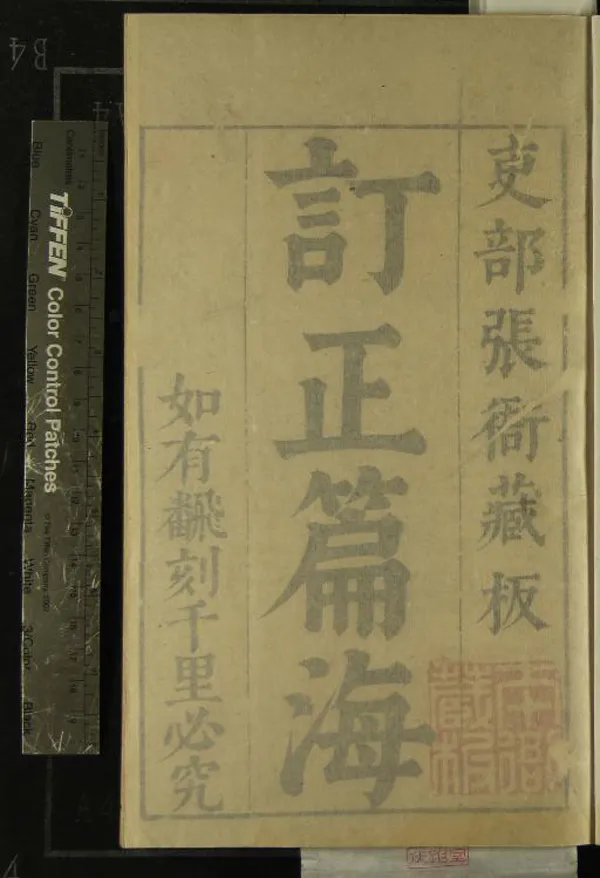 吏部張衙藏板
訂正篇海
如有飜刻千里必究
TIFFEN Color Control Patches
© The Tiffen Company, 2000
Blue
Cyan
Green
Yellow
Red
Magenta
White
3/Color
Black
Centimetres
B4
A4